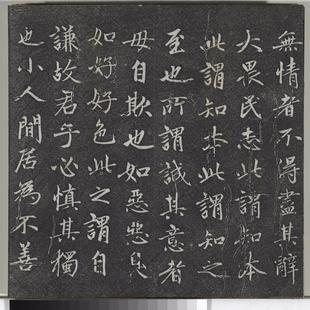 無情者不得盡其辭
大畏民志此謂知本
此謂知本此謂知之
至也所謂誠其意者
毋自欺也如惡惡臭
如好好色此之謂自
謙故君子必慎其獨
也小人閒居為不善